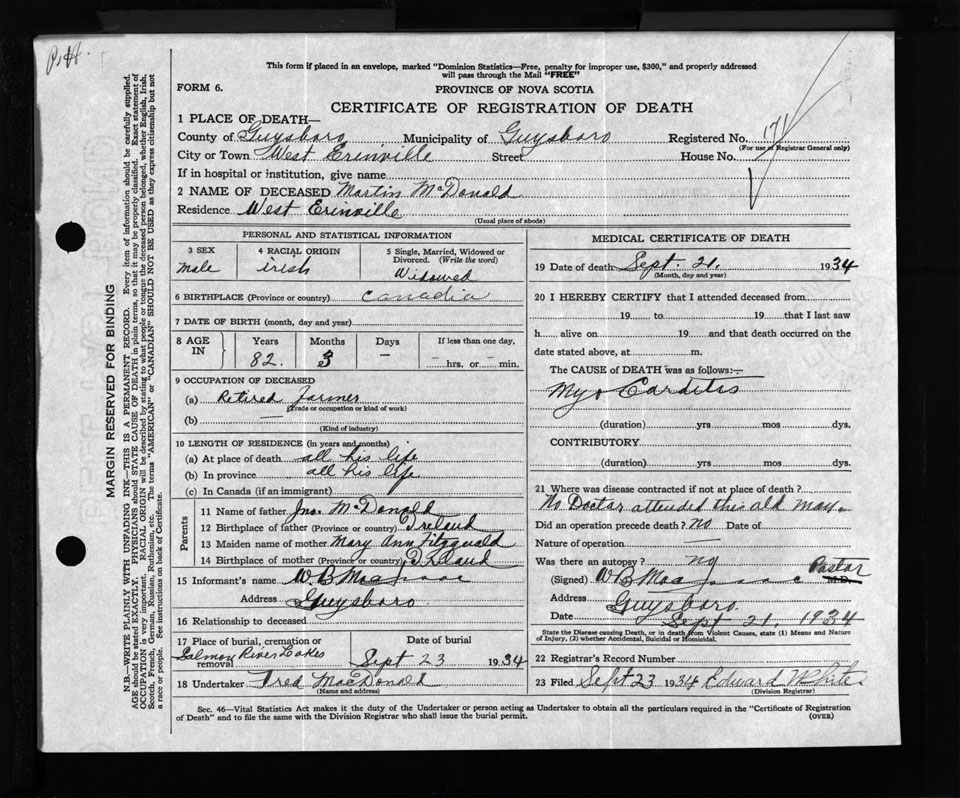 P.H.
This form if placed in an envelope, marked "Dominion Statistics—Free, penalty for improper use, $300," and properly addressed
will pass through the Mail "FREE"
FORM 6.
PROVINCE OF NOVA SCOTIA
CERTIFICATE OF REGISTRATION OF DEATH
1 PLACE OF DEATH—
County of Guysboro Municipality of Guysboro Registered No. 171
(For use of Registrar General only)
City or Town West Erinville Street House No.
If in hospital or institution, give name
2 NAME OF DECEASED Martin McDonald
Residence West Erinville
(Usual place of abode)
PERSONAL AND STATISTICAL INFORMATION
3 SEX 4 RACIAL ORIGIN 5 Single, Married, Widowed or
Divorced. (Write the word)
Male irish Widowed
6 BIRTHPLACE (Province or country) Canadia
7 DATE OF BIRTH (month, day and year)
8 AGE IN Years Months Days If less than one day,
82. 3 — hrs. or min.
9 OCCUPATION OF DECEASED
(a) Retired farmer
(Trade or occupation or kind of work)
(b) —
(Kind of industry)
10 LENGTH OF RESIDENCE (in years and months)
(a) At place of death all his life
(b) In province all his life
(c) In Canada (if an immigrant)
Parents
11 Name of father Jno. McDonald
12 Birthplace of father (Province or country) Ireland
13 Maiden name of mother Mary Ann Fitzgerald
14 Birthplace of mother (Province or country) Ireland
15 Informant's name W. B. Mac
Address Guysboro.
16 Relationship to deceased
17 Place of burial, cremation or removal Salmon River Lakes
Date of burial Sept 23 1934
18 Undertaker Fred MacDonald
(Name and address)
MEDICAL CERTIFICATE OF DEATH
19 Date of death Sept. 21. 1934
(Month, day and year)
20 I HEREBY CERTIFY that I attended deceased from
19 to 19 that I last saw
h alive on 19 and that death occurred on the
date stated above, at m.
The CAUSE of DEATH was as follows:—
Myo Carditis
(duration) yrs mos dys.
CONTRIBUTORY
(duration) yrs mos dys.
21 Where was disease contracted if not at place of death?
No Doctor attended this old man.
Did an operation precede death? no Date of
Nature of operation —
Was there an autopsy? no
(Signed) W B Mac Pastor M.D.
Address Guysboro.
Date Sept 21, 1934
State the Disease causing Death, or in death from Violent Causes, state (1) Means and Nature
of Injury, (2) whether Accidental, Suicidal or Homicidal.
22 Registrar's Record Number
23 Filed Sept 23 1934 Edward White
(Division Registrar)
Sec. 46—Vital Statistics Act makes it the duty of the Undertaker or person acting as Undertaker to obtain all the particulars required in the "Certificate of Registration
of Death" and to file the same with the Division Registrar who shall issue the burial permit. (OVER)
MARGIN RESERVED FOR BINDING
N.B.—WRITE PLAINLY WITH UNFADING INK—THIS IS A PERMANENT RECORD. Every item of information should be carefully supplied.
AGE should be stated EXACTLY. PHYSICIANS should STATE CAUSE OF DEATH in plain terms, so that it may be properly classified. Exact statement of
OCCUPATION is very important. RACIAL ORIGIN will be described by stating to what people or tongue the deceased person belonged, whether English, Irish,
Scotch, French, German, Russian, Ruthenian, etc. The terms "AMERICAN" or "CANADIAN" SHOULD NOT BE USED as they express citizenship but not
a race or people. See instructions on back of Certificate.